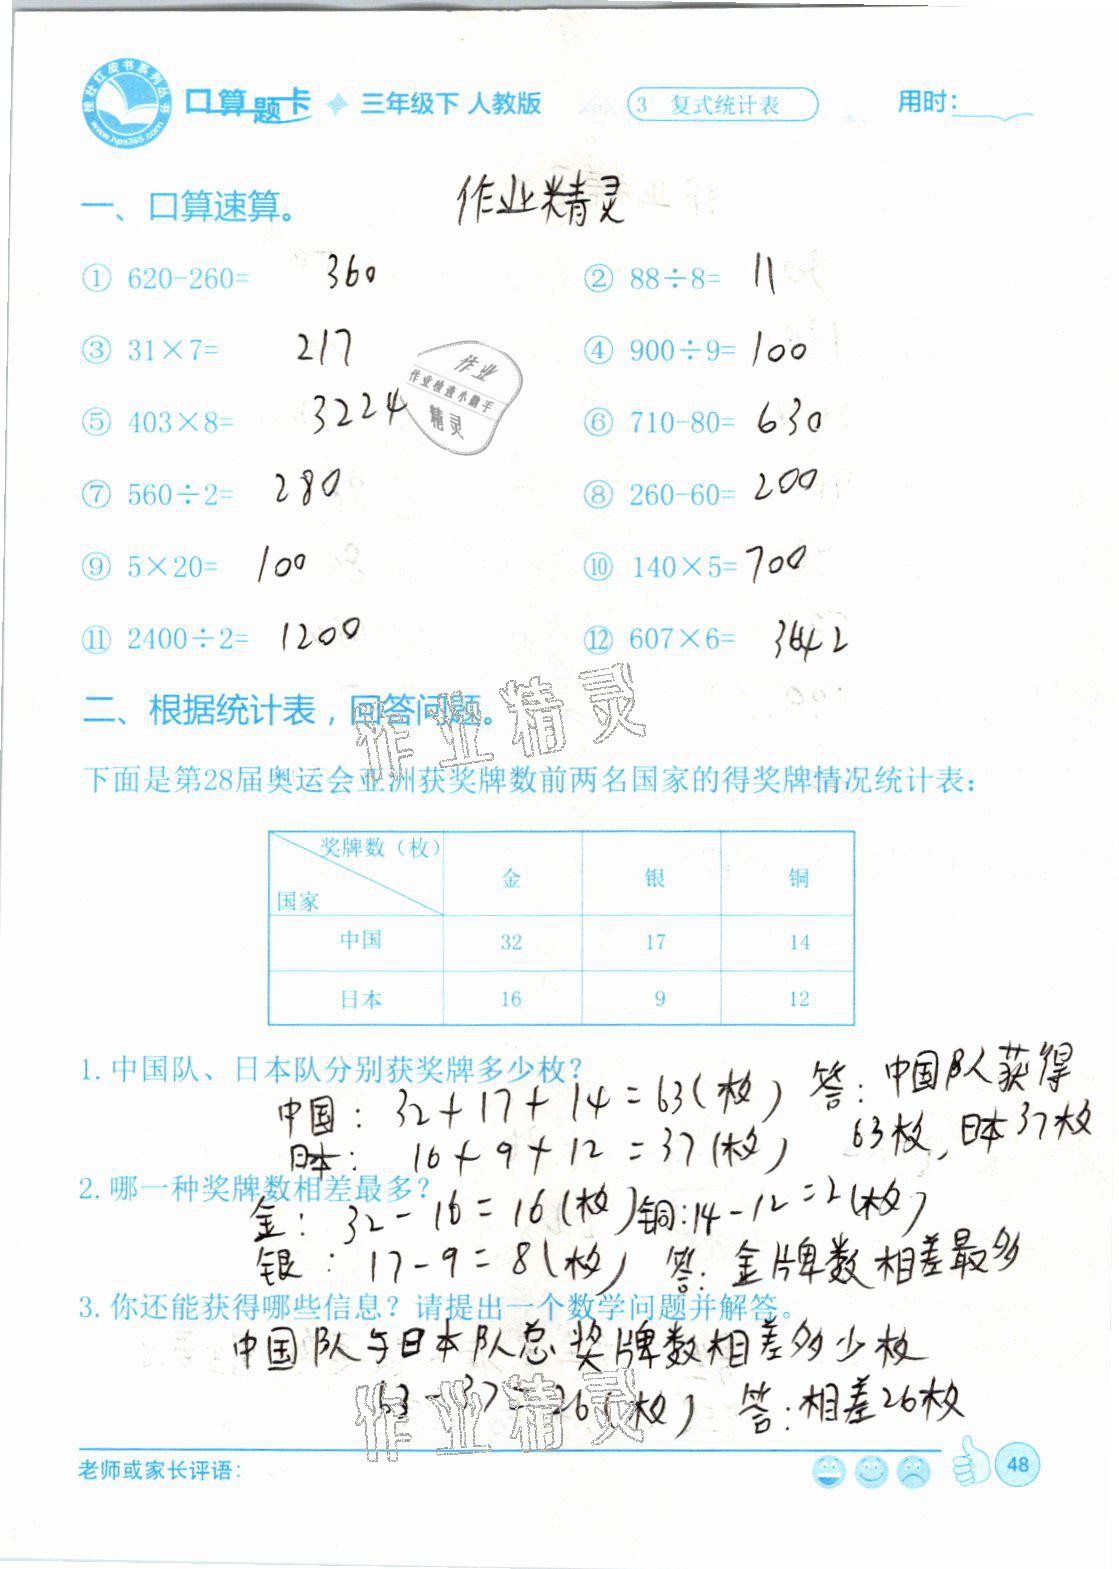 桂壮红皮书系列丛书
www.hps365.com
口算题卡 三年级下 人教版 3 复式统计表 用时：
一、口算速算。 作业精灵
① 620-260= 360 ② 88÷8= 11
③ 31×7= 217 ④ 900÷9= 100
⑤ 403×8= 3224 ⑥ 710-80= 630
作业
作业检查小助手
精灵
⑦ 560÷2= 280 ⑧ 260-60= 200
⑨ 5×20= 100 ⑩ 140×5= 700
⑪ 2400÷2= 1200 ⑫ 607×6= 3642
作业精灵
二、根据统计表，回答问题。
下面是第28届奥运会亚洲获奖牌数前两名国家的得奖牌情况统计表：
奖牌数（枚） 金 银 铜
国家
中国 32 17 14
日本 16 9 12
1.中国队、日本队分别获奖牌多少枚？
中国：32+17+14=63(枚) 答：中国队获得
日本：16+9+12=37(枚) 63枚，日本37枚
2.哪一种奖牌数相差最多？
金：32-16=16(枚) 铜：14-12=2(枚)
银：17-9=8(枚) 答：金牌数相差最多
3.你还能获得哪些信息？请提出一个数学问题并解答。
中国队与日本队总奖牌数相差多少枚
63-37=26(枚) 答：相差26枚
作业精灵
老师或家长评语： 48